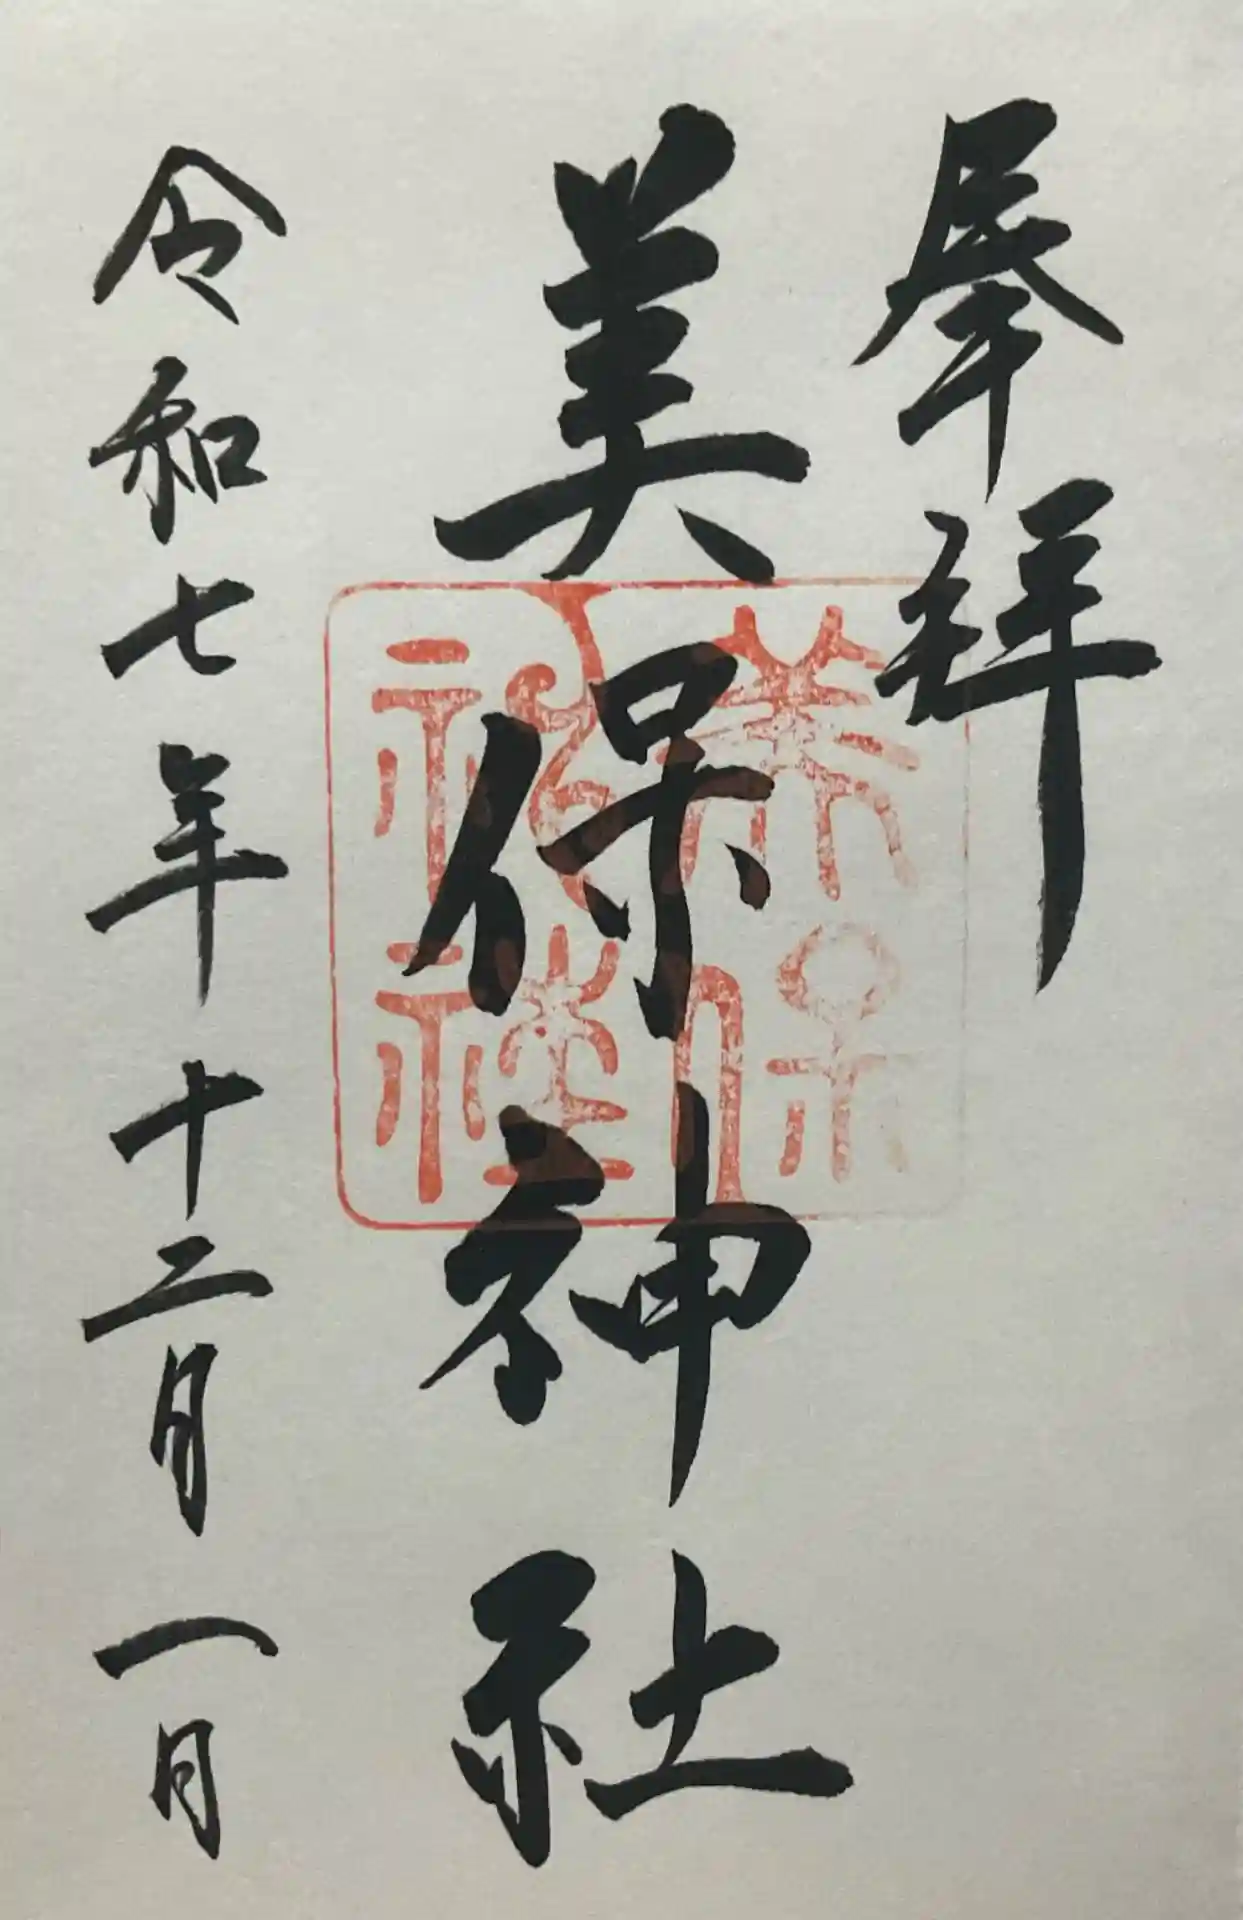 奉拝
美保神社
美保
神社
令和七年十二月一日